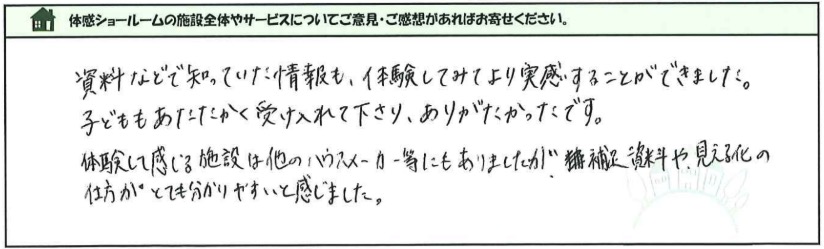 体感ショールームの施設全体やサービスについてご意見・ご感想があればお寄せください。
資料などで知っていた情報も、体験してみてより実感することができました。
子どももあたたかく受け入れて下さり、ありがたかったです。
体験して感じる施設は他のハウスメーカー等にもありましたが、補足資料や、見える化の
仕方がとても分かりやすいと感じました。